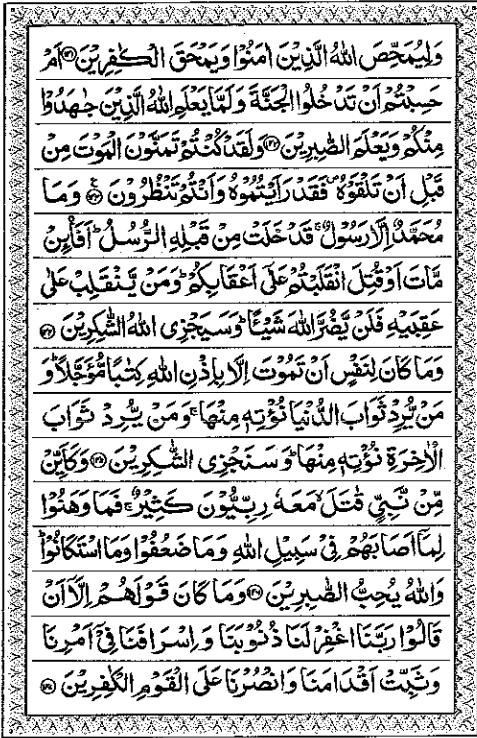 وَلِيُمَحِّصَ اللّٰهُ الَّذِيْنَ اٰمَنُوْا وَيَمْحَقَ الْكٰفِرِيْنَ ۝۱۴۱ اَمْ
حَسِبْتُمْ اَنْ تَدْخُلُوا الْجَنَّةَ وَلَمَّا يَعْلَمِ اللّٰهُ الَّذِيْنَ جٰهَدُوْا
مِنْكُمْ وَيَعْلَمَ الصّٰبِرِيْنَ ۝۱۴۲ وَلَقَدْ كُنْتُمْ تَمَنَّوْنَ الْمَوْتَ مِنْ
قَبْلِ اَنْ تَلْقَوْهُ ۪ فَقَدْ رَاَيْتُمُوْهُ وَاَنْتُمْ تَنْظُرُوْنَ ۝۱۴۳ۧ وَمَا
مُحَمَّدٌ اِلَّا رَسُوْلٌ ۚ قَدْ خَلَتْ مِنْ قَبْلِهِ الرُّسُلُ ؕ اَفَا۟ىِٕنْ
مَّاتَ اَوْ قُتِلَ انْقَلَبْتُمْ عَلٰٓى اَعْقَابِكُمْ ؕ وَمَنْ يَّنْقَلِبْ عَلٰى
عَقِبَيْهِ فَلَنْ يَّضُرَّ اللّٰهَ شَيْـًٔا ؕ وَسَيَجْزِى اللّٰهُ الشّٰكِرِيْنَ ۝۱۴۴
وَمَا كَانَ لِنَفْسٍ اَنْ تَمُوْتَ اِلَّا بِاِذْنِ اللّٰهِ كِتٰبًا مُّؤَجَّلًا ؕ وَ
مَنْ يُّرِدْ ثَوَابَ الدُّنْيَا نُؤْتِهٖ مِنْهَا ۚ وَمَنْ يُّرِدْ ثَوَابَ
الْاٰخِرَةِ نُؤْتِهٖ مِنْهَا ؕ وَسَنَجْزِى الشّٰكِرِيْنَ ۝۱۴۵ وَكَاَيِّنْ
مِّنْ نَّبِيٍّ قٰتَلَ ۙ مَعَهٗ رِبِّيُّوْنَ كَثِيْرٌ ۚ فَمَا وَهَنُوْا
لِمَاۤ اَصَابَهُمْ فِيْ سَبِيْلِ اللّٰهِ وَمَا ضَعُفُوْا وَمَا اسْتَكَانُوْا ؕ
وَاللّٰهُ يُحِبُّ الصّٰبِرِيْنَ ۝۱۴۶ وَمَا كَانَ قَوْلَهُمْ اِلَّاۤ اَنْ
قَالُوْا رَبَّنَا اغْفِرْ لَنَا ذُنُوْبَنَا وَاِسْرَافَنَا فِيْۤ اَمْرِنَا
وَثَبِّتْ اَقْدَامَنَا وَانْصُرْنَا عَلَى الْقَوْمِ الْكٰفِرِيْنَ ۝۱۴۷